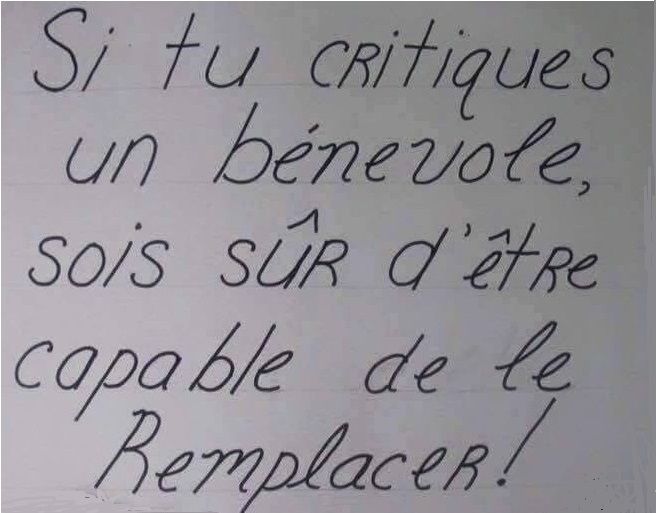 Si tu critiques
un bénevole,
sois sûr d'être
capable de le
Remplacer!